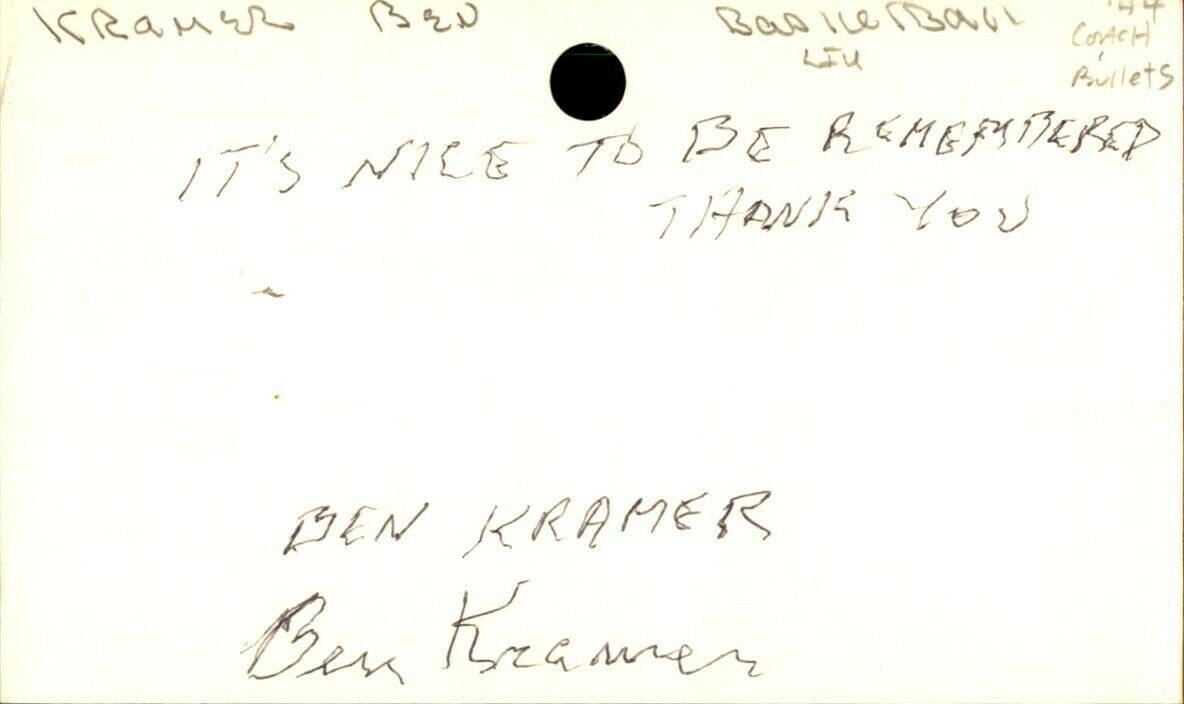 KRAMER BEN BasketBall '44
LIU COACH
Bullets
IT'S NICE TO BE REMEMBERED
THANK YOU
BEN KRAMER
Ben Kramer